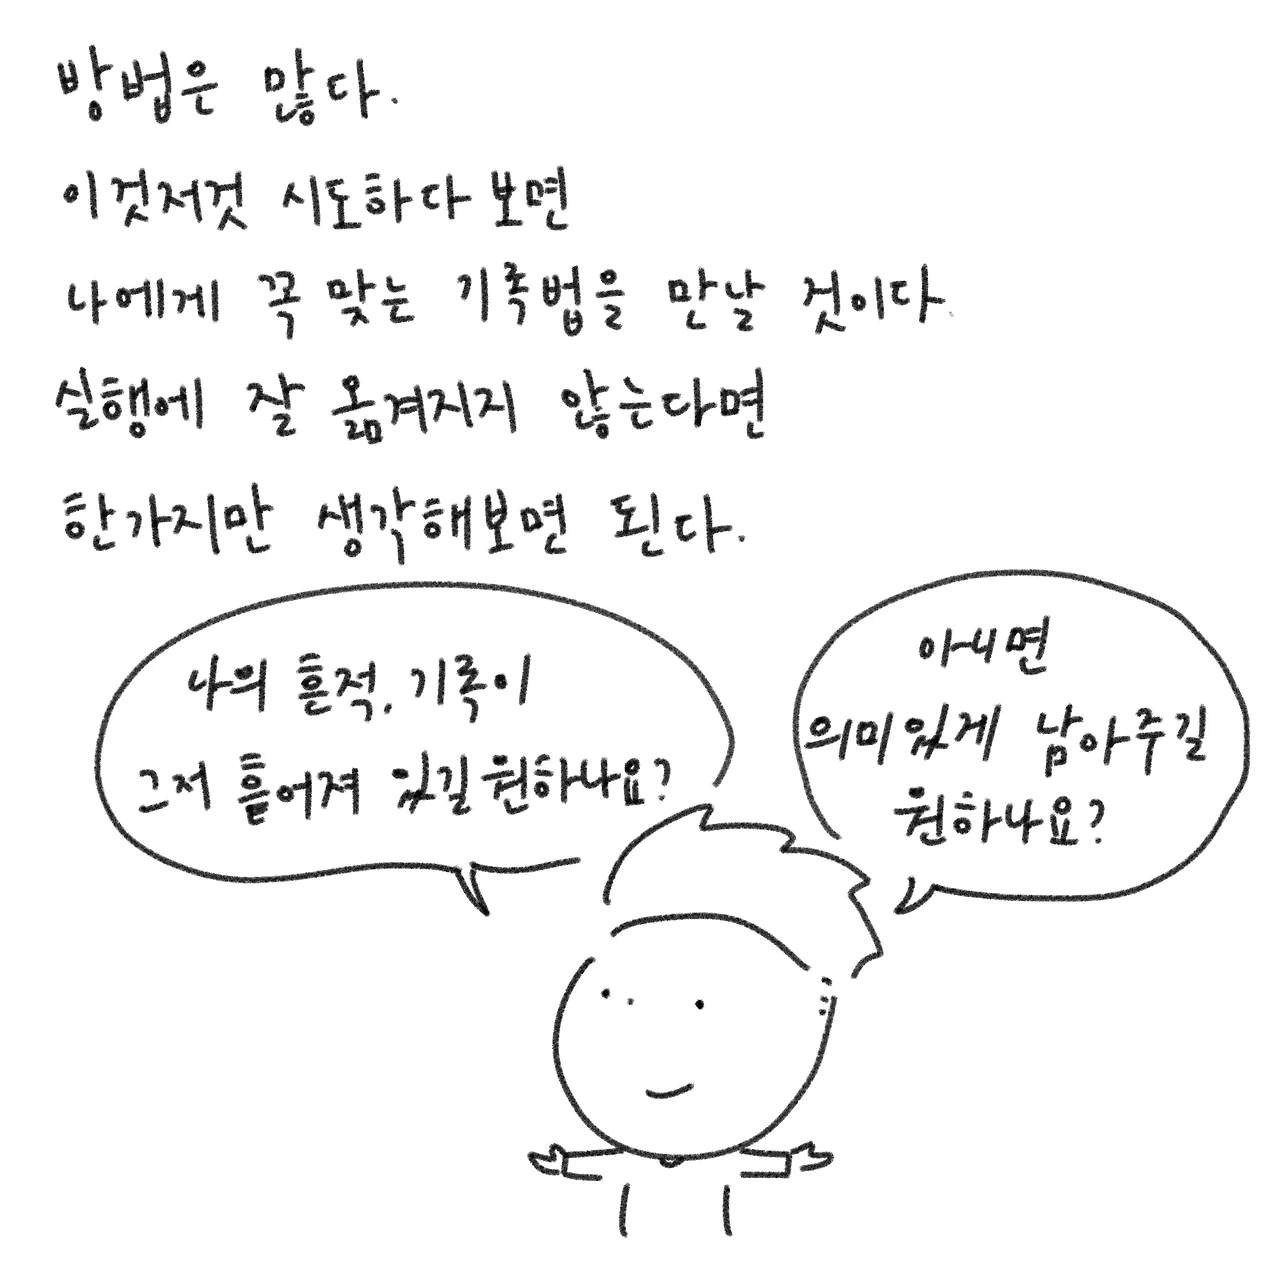 방법은 많다.
이것저것 시도하다 보면
나에게 꼭 맞는 기록법을 만날 것이다.
실행에 잘 옮겨지지 않는다면
한가지만 생각해보면 된다.
나의 흔적, 기록이
그저 흩어져 있길 원하나요?
아니면
의미있게 남아주길
원하나요?